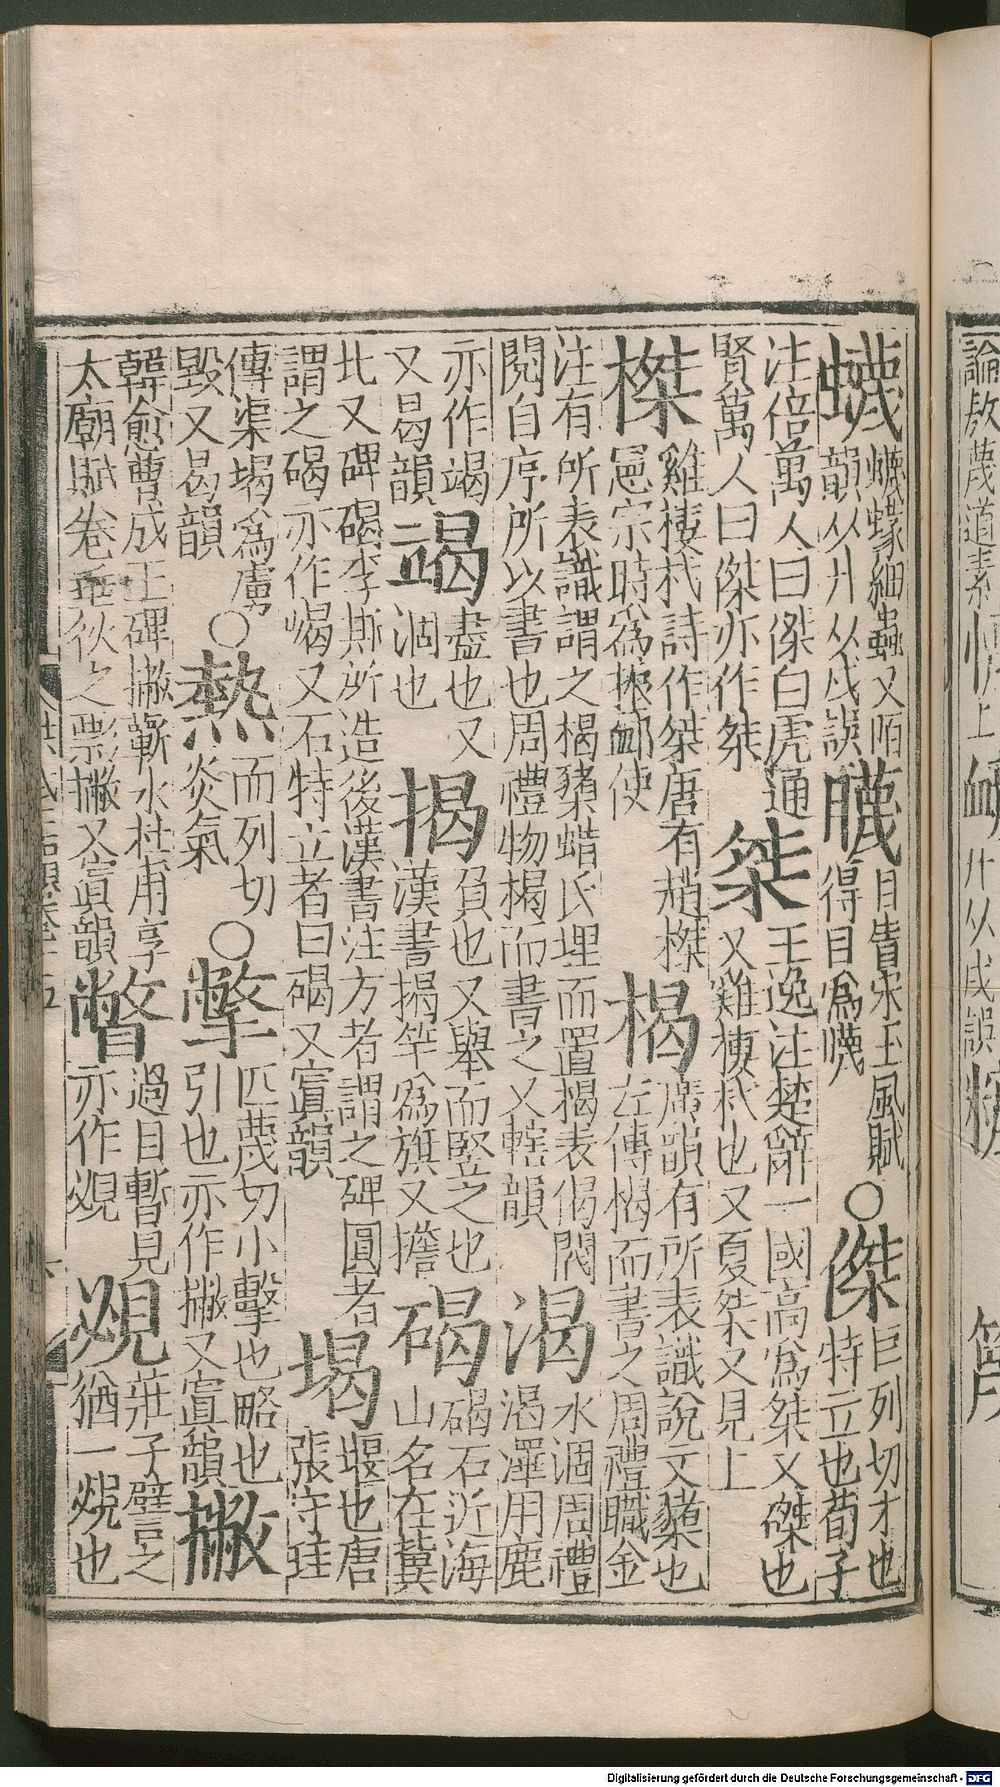 蠛蠛蠓細蟲又陌
韻从廾从戍誤
䁾目眥宋玉風賦
得目爲䁾
○傑巨列切才也
特立也荀子
注倍萬人曰傑白虎通
賢萬人曰傑亦作桀
桀王逸注楚辭一國高爲桀又磔也
又雞棲杙也又夏桀又見上
榤雞棲杙詩作桀唐有趙榤
憲宗時爲按䘏使
楬廣韻有所表識說文楬櫫也
左傳楬而書之周禮職金
注有所表識謂之楬櫫蜡氏埋而置楬表偈閥
閱自序所以書也周禮物楬而書之又轄韻
渴水涸周禮
渴澤用鹿
亦作竭
又曷韻
竭盡也又
涸也
揭負也又舉而豎之也
漢書揭竿爲旗又擔
碣碣石近海
山名在冀
北又碑碣李斯所造後漢書注方者謂之碑圓者
謂之碣亦作嵑又石特立者曰碣又寘韻
堨堰也唐
張守珪
傳渠堨爲虜
毀又曷韻
○熱而列切
炎氣
○撆匹蔑切小擊也略也
引也亦作撇又寘韻
撇
韓愈曹成王碑撇蘄水杜甫享
太廟賦卷垂狄之影撇又寘韻
暼過目暫見
亦作覕
覕莊子譬之
猶一覕也
論敖蔑道素
Digitalisierung gefördert durch die Deutsche Forschungsgemeinschaft - DFG